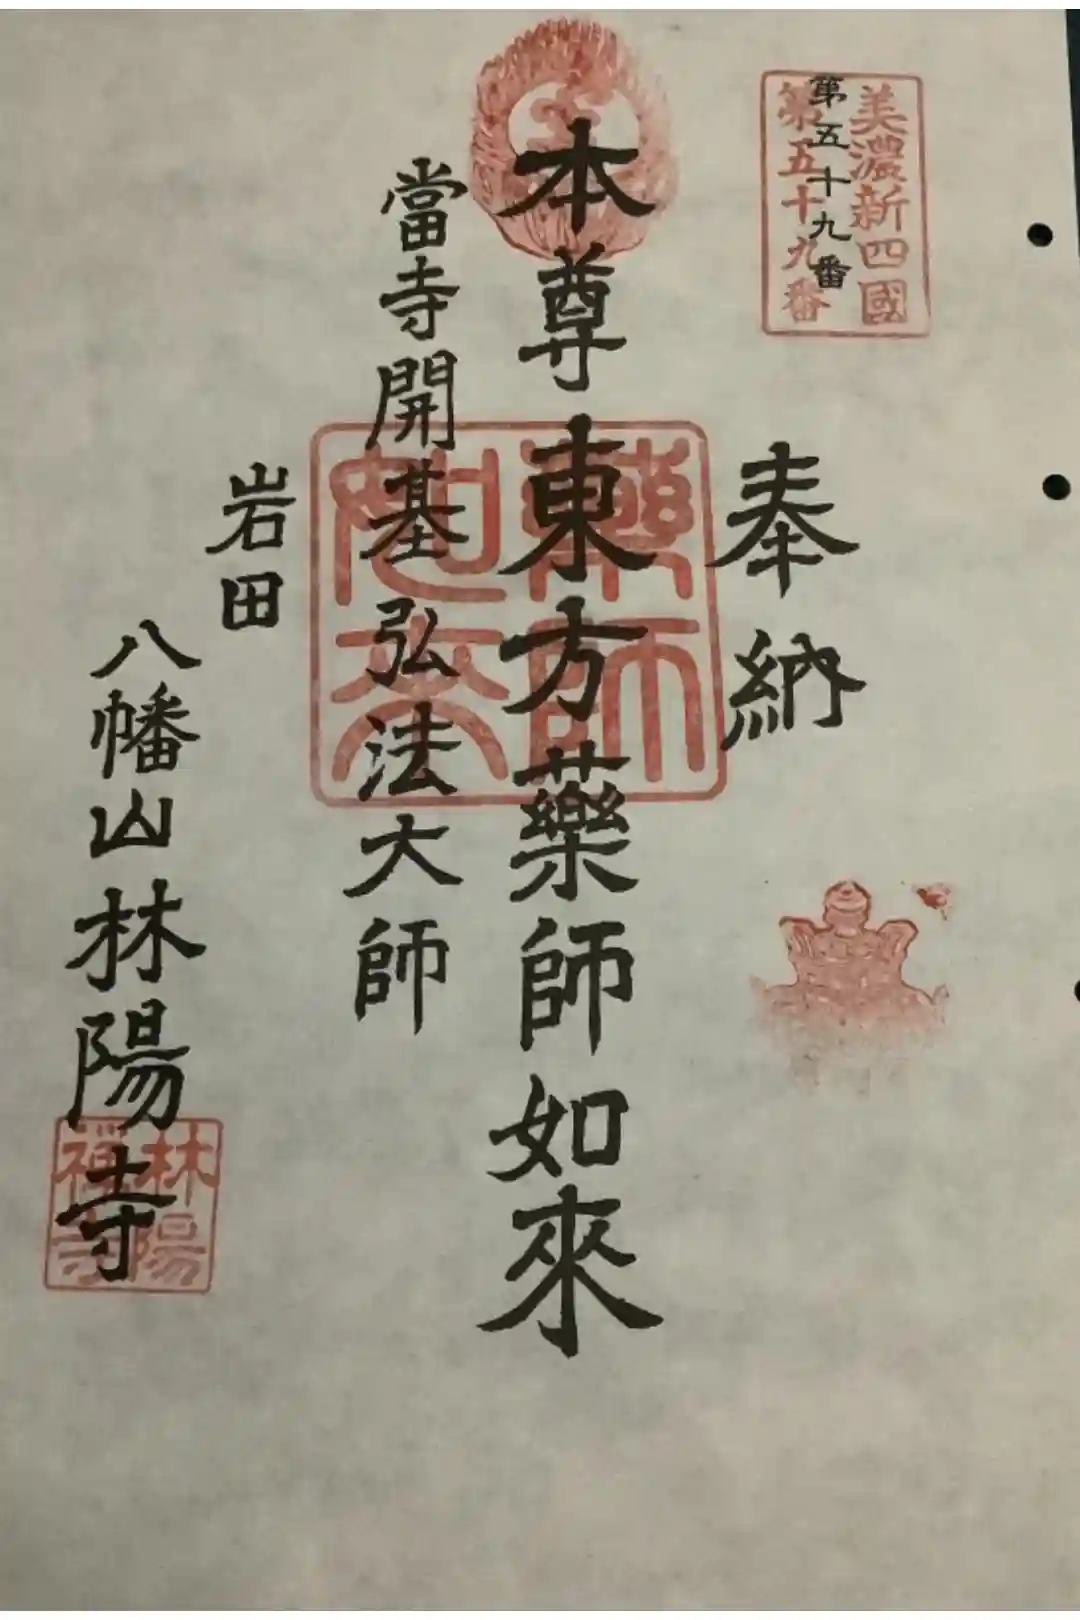 美濃新四國
第五十九番
第五十九番
奉納
本尊東方藥師如來
藥師
當寺開基弘法大師
岩田
八幡山林陽寺
林陽
禅寺